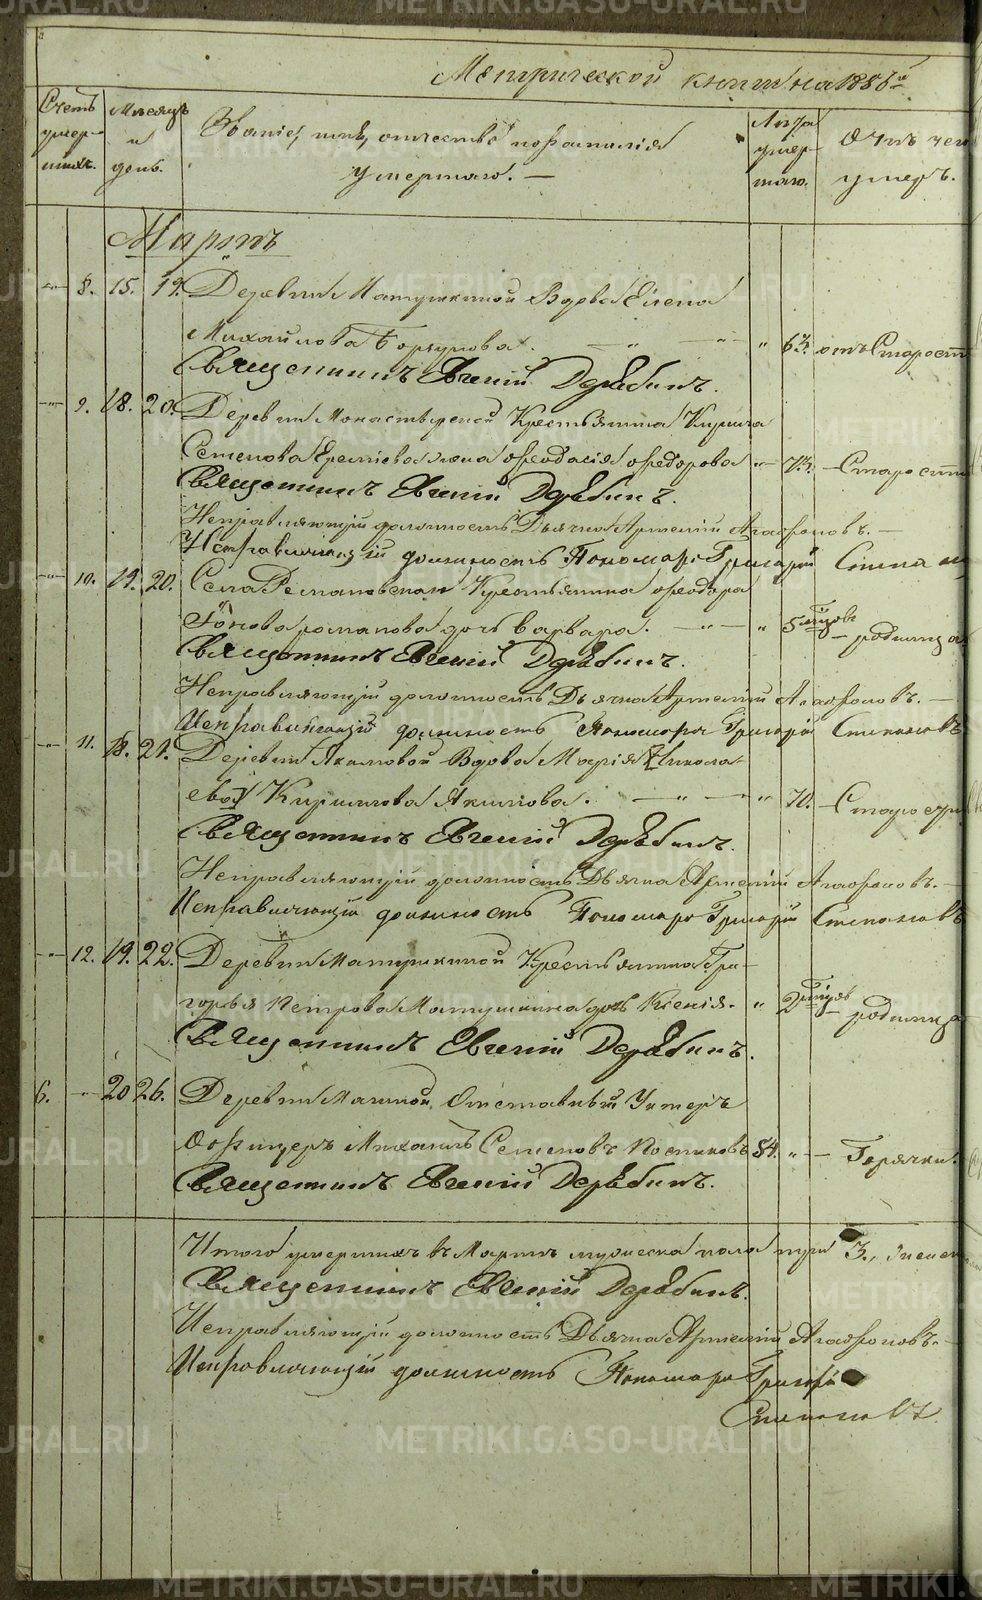 Метрической книги на 1886й
Счетъ умер-шихъ.
Месяцъ и день.
Званіе, имя, отчество и фамилія
умершаго. —
Лета умер-шаго.
Отъ чего
умеръ.
Мартъ
" 8. 15. 19. Деревни Матушкиной Вдова Елена
Михайлова " " отъ Старост
Священникъ Евгеній Дерябинъ.
" 9. 18. 20. Деревни Монастырской Крестьянина Кирила
Семенова жена Феодосія Федорова " Старости
Священникъ Евгеній Дерябинъ.
Исправляющій должность Дьячка Артемій Агафоновъ. —
Исправляющій должность Пономаря Григорій
" 10. 19. 20. Села Романовскаго Крестьянина Феодора
Романова дочь Варвара. — " — " 5 родимца
Священникъ Евгеній Дерябинъ.
Исправляющій должность Дьячка Артемій Агафоновъ. —
Исправляющій должность Пономаря Григорій Степановъ
" 11. 18. 21. Деревни Акимовой Вдова Марія Никола-
ева Кирилова Акимова. — " — " 70. Старости
Священникъ Евгеній Дерябинъ.
Исправляющій должность Дьячка Артемій Агафоновъ. —
Исправляющій должность Пономаря Григорій Степановъ
" 12. 19. 22. Деревни Матушкиной Крестьянина Гри-
горья Петрова Матушкина дочь Ксенія. " 2 родимца
Священникъ Евгеній Дерябинъ.
6. — 20 26. Деревни Отставный Унтеръ
Офицеръ Михаилъ Семеновъ Постниковъ 84. " — Горячки.
Священникъ Евгеній Дерябинъ.
Итого умершихъ въ Марте мужеска пола три 3.,
Священникъ Евгеній Дерябинъ.
Исправляющій должность Дьячка Артемій Агафоновъ. —
Исправляющій должность Пономаря Григорій
Степановъ
METRIKI.GASO-URAL.RU